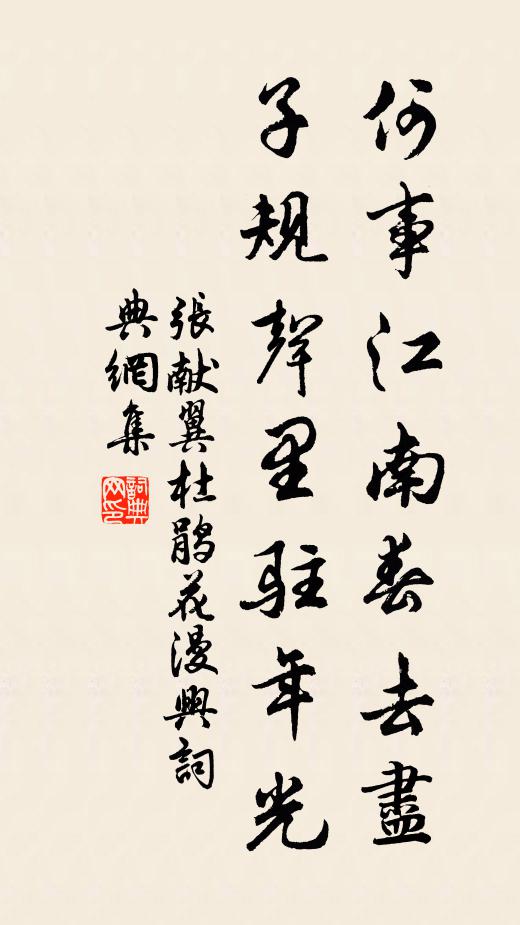 何事江南春去盡
子規聲里駐年光
張献翼杜鵑花漫興詞
典網集
詞典
网印